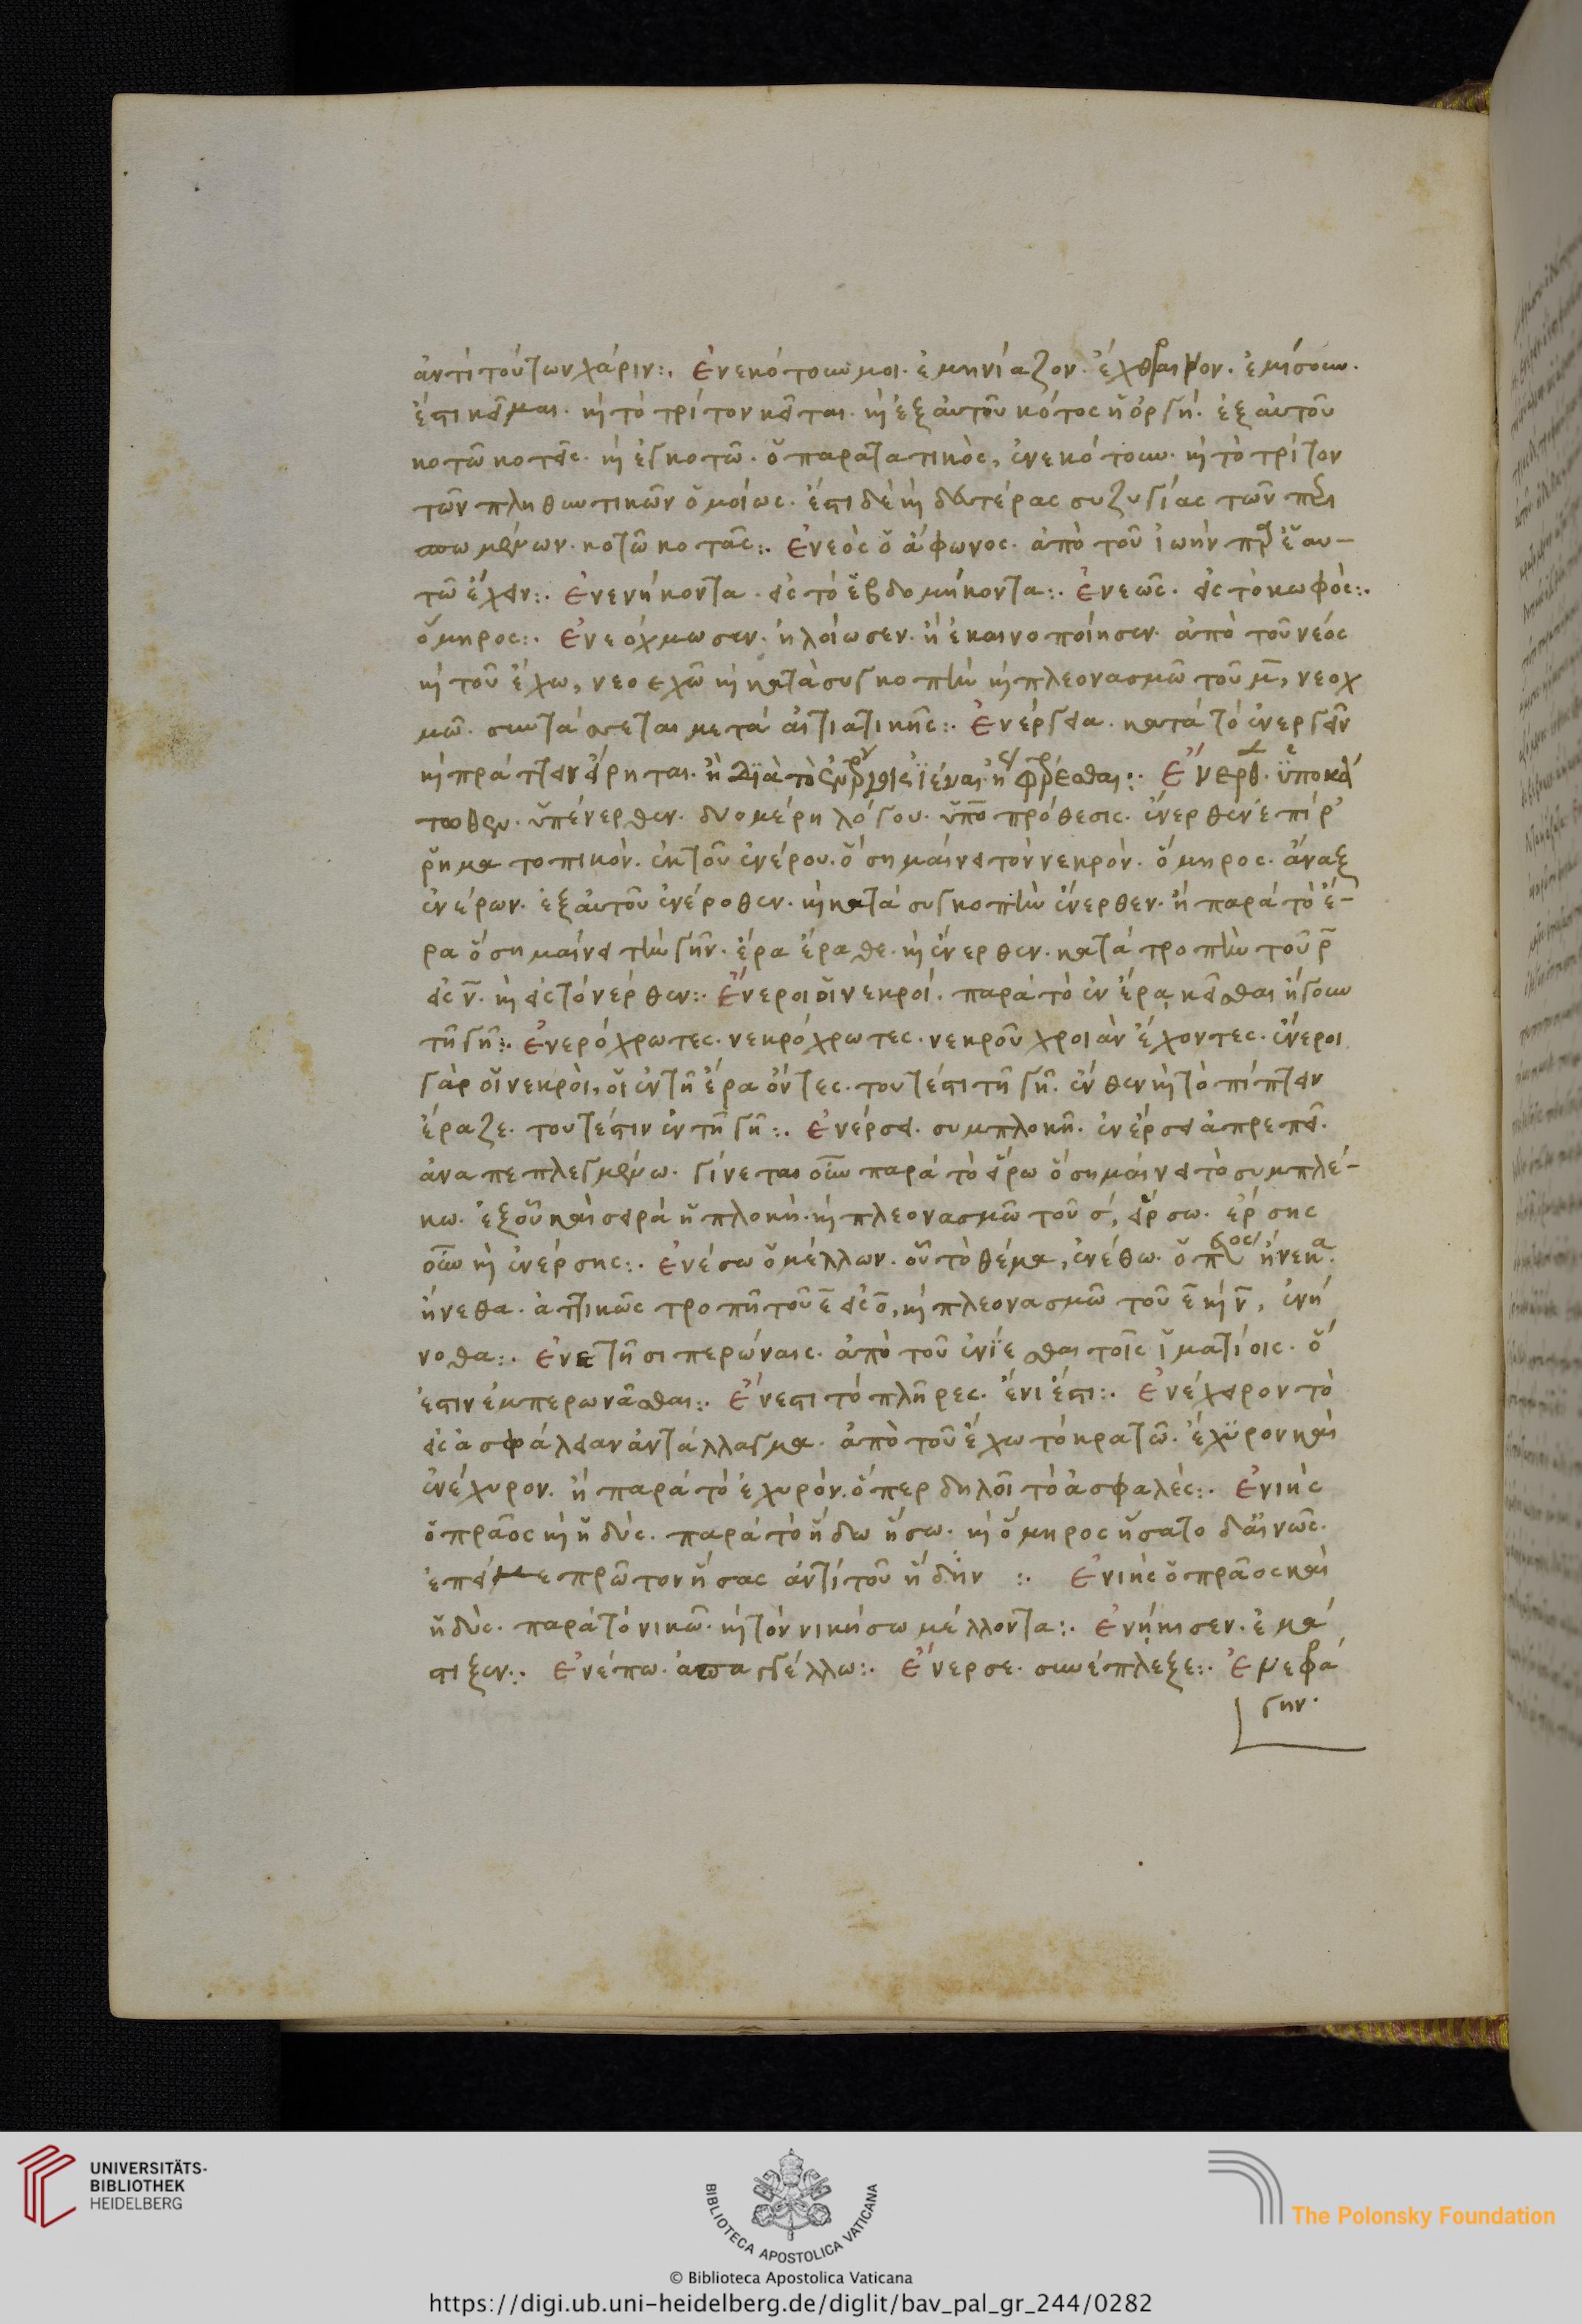 ἀντὶ τούτων χάριν:. Ἐνεκότουν μοι. ἐμηνίαζον. ἔχθραινον. ἐμίσουν.
ἔστι κεῖμαι. καὶ τὸ τρίτον κεῖται. καὶ ἐξ αὐτοῦ κότος ἡ ὀργή. ἐξ αὐτοῦ
κοτῶ κοτεῖς. καὶ ἐγκοτῶ. ὁ παρατατικὸς, ἐνεκότουν. καὶ τὸ τρίτον
τῶν πληθυντικῶν ὁμοίως. ἔστι δὲ καὶ δευτέρας συζυγίας τῶν περι
σπωμένων. κοτῶ κοτᾶς:. Ἐνεὸς ὁ ἄφωνος. ἀπὸ τοῦ ἰωὴν παρ' ἑαυ-
τῶ ἔχειν:. Ἐνενήκοντα. εἰς τὸ ἑβδομήκοντα:. Ἐνεῶς. εἰς τὸ κωφός:.
ὅμηρος:. Ἐνεόχμωσεν. ἠλοίωσεν. ἢ ἐκαινοποίησεν. ἀπὸ τοῦ νέος
καὶ τοῦ ἔχω, νεοεχῶ καὶ κατὰ συγκοπὴν καὶ πλεονασμῶ τοῦ μ̄, νεοχ
μῶ. συντάσσεται μετὰ αἰτιατικῆς:. Ἐνέργεια. κατὰ τὸ ἐνεργεῖν
καὶ πράττειν εἴρηται. ἢ διὰ τὸ
τωθεν. ὑπένερθεν. δύο μέρη λόγου. ὑπὸ πρόθεσις. ἔνερθεν ἐπίρ
ρημα τοπικόν. ἐκ τοῦ ἐνέρου. ὃ σημαίνει τὸν νεκρόν. ὅμηρος. ἄναξ
ἐνέρων. ἐξ αὐτοῦ ἐνέροθεν. καὶ κατὰ συγκοπὴν ἔνερθεν. ἢ παρὰ τὸ ἔ-
ρα ὃ σημαίνει τὴν γῆν. ἔρα ἔραθε. καὶ ἔνερθεν. κατὰ τροπὴν τοῦ ρ̄
εἰς ν̄. καὶ εἰς τὸ νέρθεν:. Ἔνεροι οἱ νεκροί. παρὰ τὸ ἐν ἔρα κεῖσθαι ἤγουν
τῆ γῆ:. Ἐνερόχρωτες. νεκρόχρωτες. νεκροῦ χροιὰν ἔχοντες. ἔνεροι
γὰρ οἱ νεκροὶ, οἱ ἐν τῆ ἔρα ὄντες. τουτέστι τῆ γῆ. ἔνθεν καὶ τὸ πίπτειν
ἔραζε. τουτέστιν ἐν τῆ γῆ:. Ἐνέρσει. συμπλοκῆ. ἐνέρσει ἀπρεπεῖ.
ἀναπεπλεγμένω. γίνεται οὖν παρὰ τὸ εἴρω ὃ σημαίνει τὸ συμπλέ-
κω. ἐξ οὗ καὶ σειρὰ ἡ πλοκή. καὶ πλεονασμῶ τοῦ σ, εἴρσω. ἔρσης
οὖν καὶ ἐνέρσης:. Ἐνέσω ὁ μέλλων. οὗ τὸ θέμα, ἐνέθω. ὁ ἤνεκα.
ἤνεθα. ἀττικῶς τροπῆ τοῦ ε̄ εἰς ο̄, καὶ πλεονασμῶ τοῦ ε̄ καὶ ν̄, ἐνή
νοθα:. Ἐνετῆσι περώναις. ἀπὸ τοῦ ἐνίεσθαι τοῖς ἱματίοις. ὅ
ἐστιν ἐμπερωνᾶσθαι:. Ἔνεστι τὸ πλῆρες. ἔνι ἔστι:. Ἐνέχειρον τὸ
εἰς ἀσφάλειαν ἀντάλλαγμα. ἀπὸ τοῦ ἔχω τὸ κρατῶ. ἔχυρον καὶ
ἐνέχυρον. ἢ παρὰ τὸ ἐχυρόν. ὅπερ δηλοῖ τὸ ἀσφαλές:. Ἐνιὴς
ὁ πρᾶος καὶ ἡδύς. παρὰ τὸ ἥδω ἥσω. καὶ ὅμηρος ἥσατο δαινῶς.
ἐπεί με πρῶτον ἥσας ἀντὶ τοῦ ἥδειν:. Ἐνιὴς ὁ πρᾶος καὶ
ἡδύς. παρὰ τὸ νικῶ. καὶ τὸν νικήσω μέλλοντα:. Ἐνήκισεν. ἐμά
στιξεν:. Ἐνέπω. ἀπαγγέλλω:. Ἔνερσε. συνέπλεξε:. Ἐνεφά
γην.
UNIVERSITÄTS-
BIBLIOTHEK
HEIDELBERG
BIBLIOTECA APOSTOLICA VATICANA
The Polonsky Foundation
© Biblioteca Apostolica Vaticana
https://digi.ub.uni-heidelberg.de/diglit/bav_pal_gr_244/0282